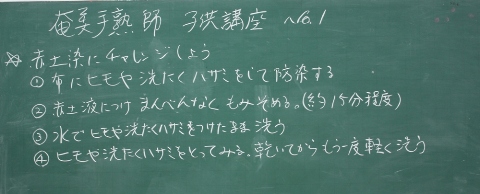 奄美手熟師 子供講座 No.1
☆ 赤土染にチャレンジしよう
① 布にヒモや洗たくハサミをして防染する
② 赤土液につけまんべんなくもみそめる。(約15分程度)
③ 水でヒモや洗たくハサミをつけたまま洗う
④ ヒモや洗たくハサミをとってみる。乾いてからもう一度軽く洗う